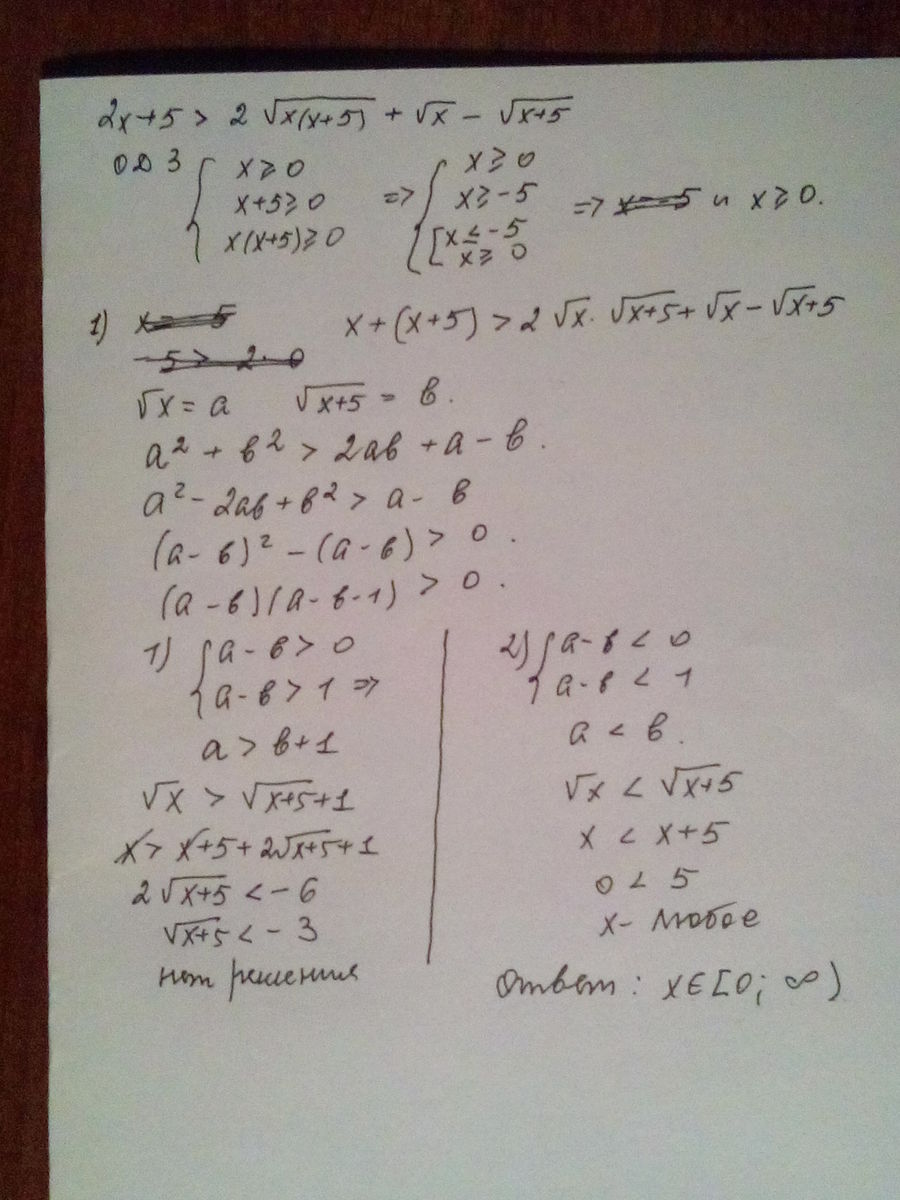 2x+5 > 2√x(x+5) + √x − √x+5
ОДЗ { x ≥ 0 => { x ≥ 0
x+5 ≥ 0 x ≥ -5 => x=-5 и x ≥ 0.
x(x+5) ≥ 0 [ x ≤ -5
x ≥ 0
1) x=-5 x+(x+5) > 2√x · √x+5 + √x − √x+5
-5 > 2·0
√x = a √x+5 = в.
a² + в² > 2aв + a − в.
a² − 2aв + в² > a − в
(a−в)² − (a−в) > 0.
(a−в)(a−в−1) > 0.
1) { a−в > 0
a−в > 1 =>
a > в+1
√x > √x+5 + 1
x > x+5 + 2√x+5 + 1
2√x+5 < −6
√x+5 < −3
нет решения
2) { a−в < 0
a−в < 1
a < в.
√x < √x+5
x < x+5
0 < 5
x − любое
Ответ: x∈[0; ∞)